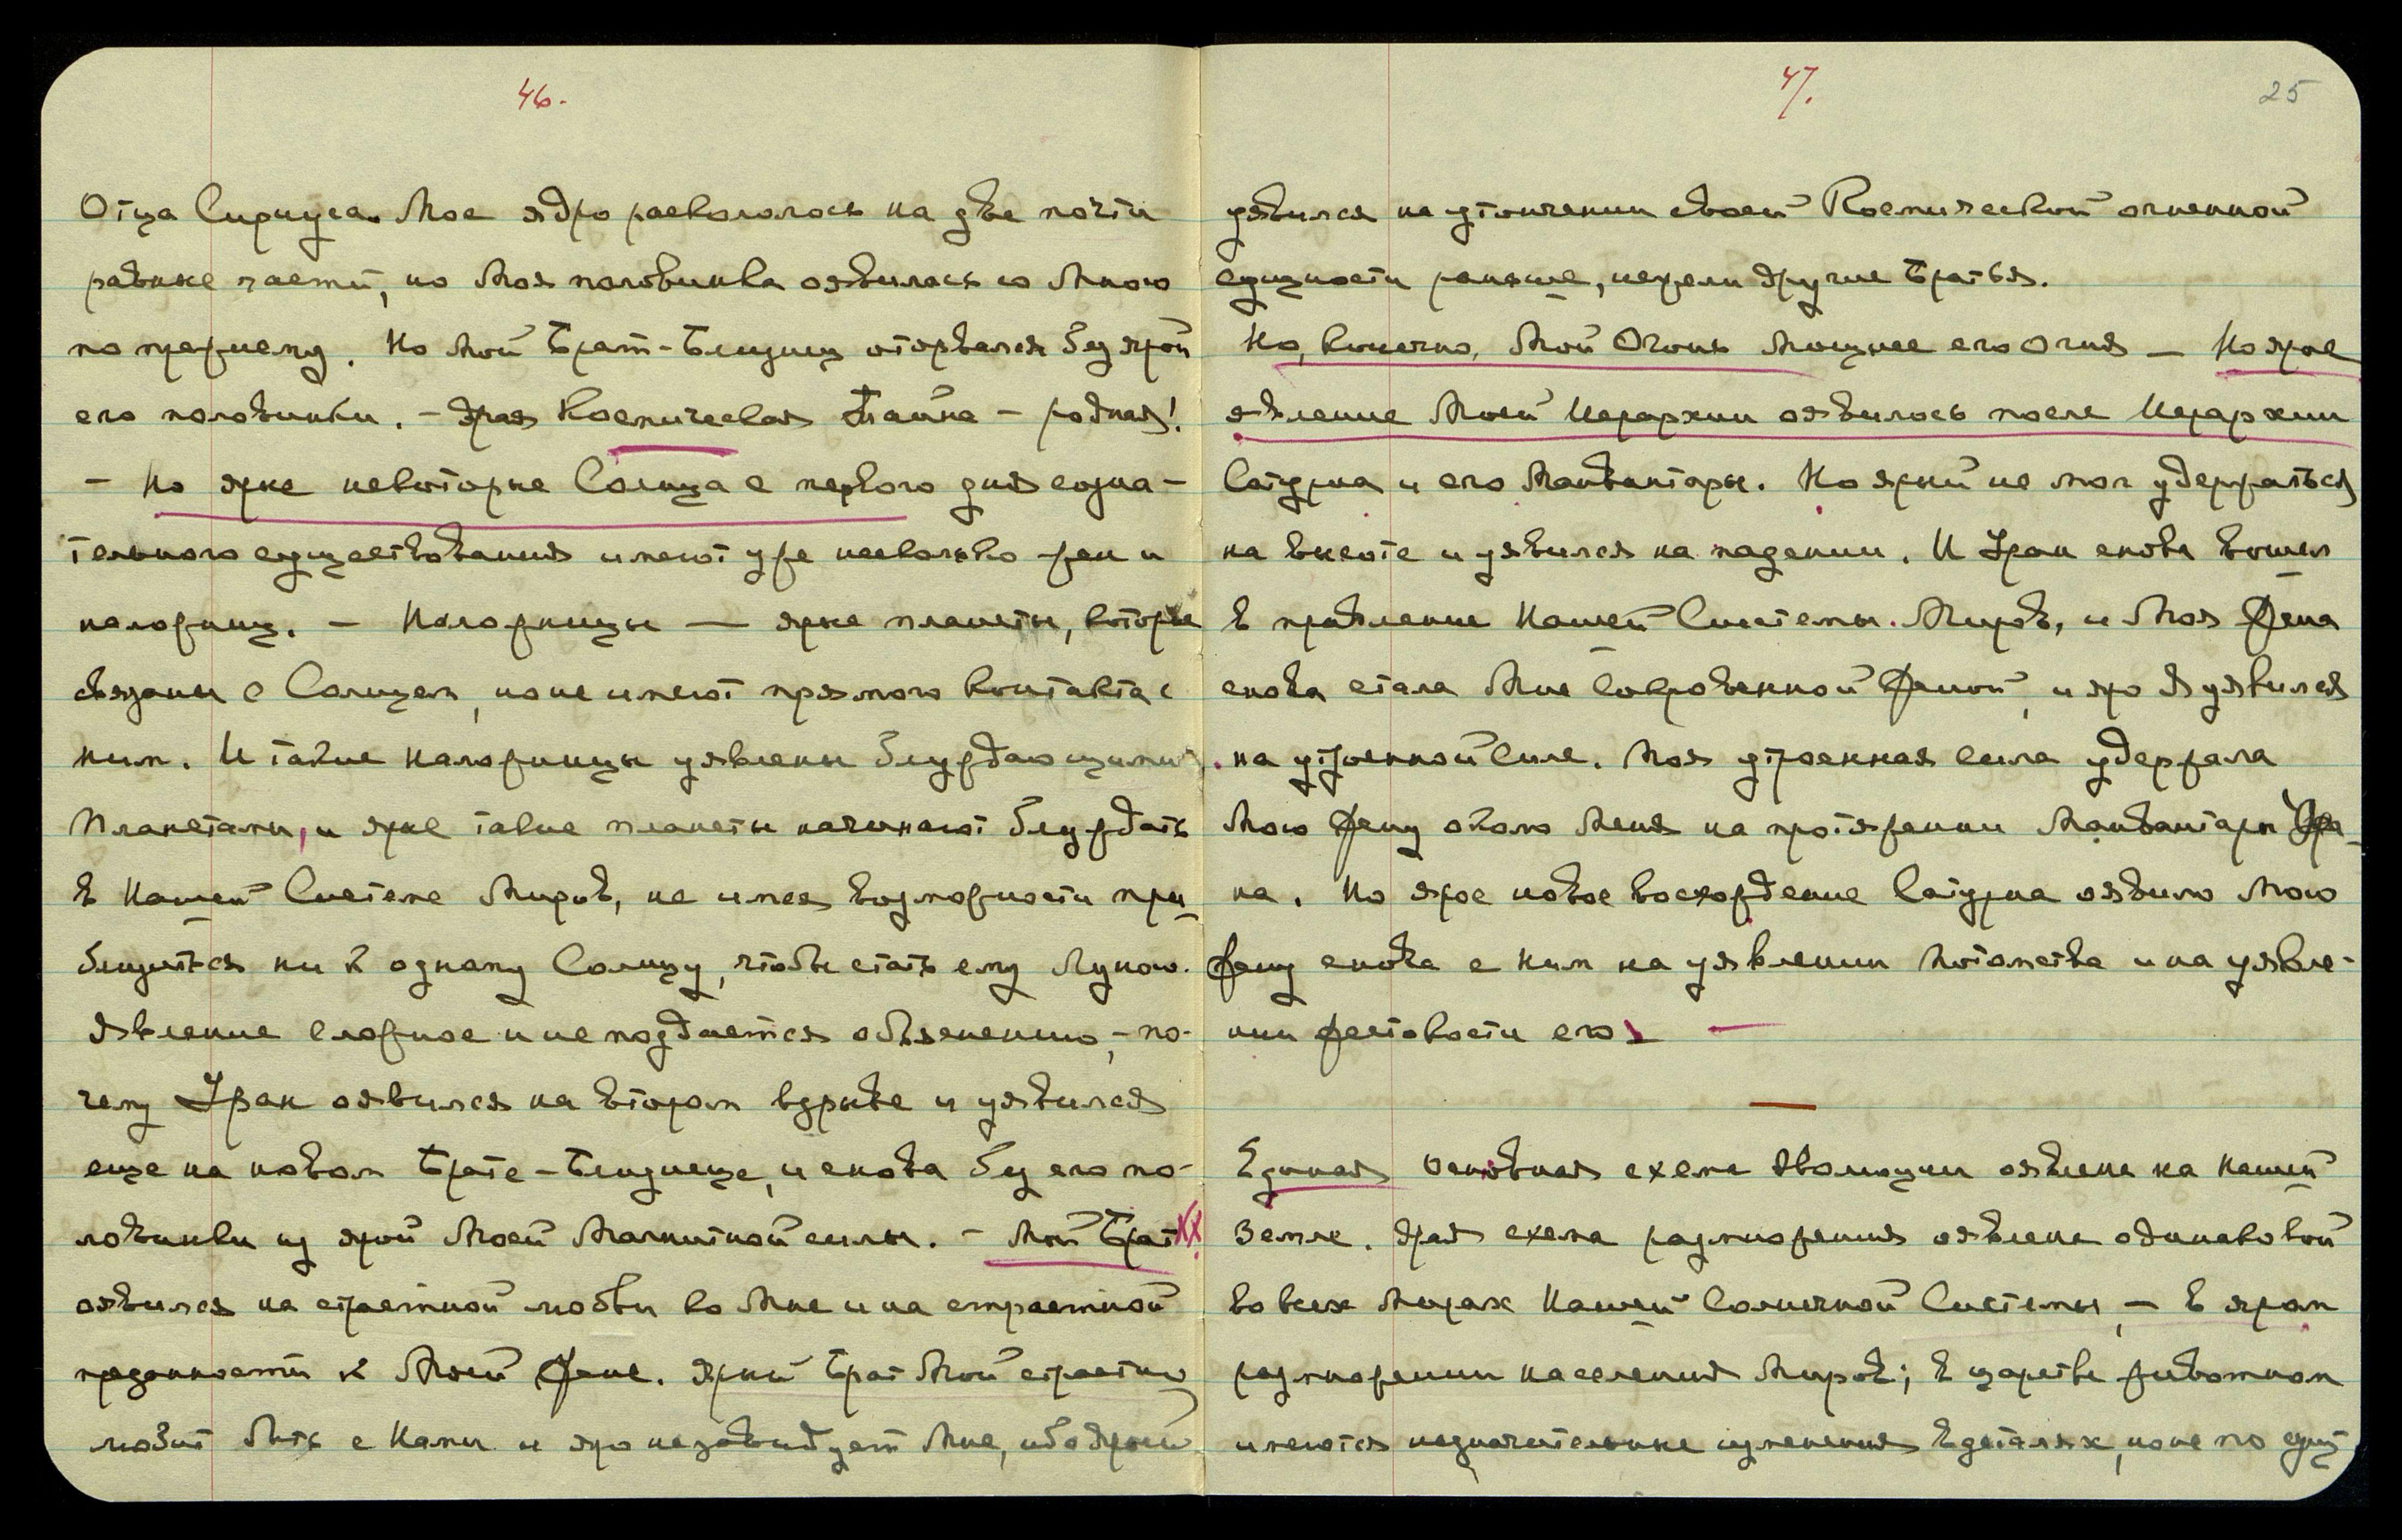 46.
Отца Сириуса. Мое ядро раскололось на две почти
равные части, но Моя половинка оявилась со Мною
по прежнему. Но Мой Брат-Близнец оторвался без ярой
его половинки. – Ярая Космическая Тайна – родная!
– Но ярые некоторые Солнца с первого дня созна-
тельного существования имеют уже несколько жен и
наложниц. – Наложницы — ярые планеты, которые
связаны с Солнцем, но не имеют прямого контакта с
ним. И такие наложницы уявлены блуждающими
Планетами, и ярые такие планеты начинают блуждать
в Нашей Системе Миров, не имея возможности при-
близиться ни к одному Солнцу, чтобы стать ему Луною.
Явление сложное и не поддается объяснению, – по-
чему Уран оявился на втором взрыве и уявился
еще на новом Брате-Близнеце, и снова без его по-
ловинки из ярой Моей Магнитной силы. – Мой Брат
оявился на страстной любви ко Мне и на страстной
преданности к Моей Жене. Ярый Брат Мой страстно
любит Быть с Нами и яро незавидует Мне, ибо ярый
47.
25
уявился на утончении своей Космической огненной
сущности раньше, нежели другие Братья.
Но, конечно, Мой Огонь Мощнее его Огня – Но ярое
явление Моей Иерархии оявилось после Иерархии
Сатурна и его Манвантары. Но ярый не мог удержаться
на высоте и уявился на падении. И Уран снова вошел
в правление Нашей Системы Миров, и Моя Жена
снова стала Мне Сокровенной Женой, и яро Я уявился
на утроенной Силе. Моя утроенная Сила удержала
Мою Жену около Меня на протяжении Манвантары Ура-
на. Но ярое новое восхождение Сатурна оявило Мою
Жену снова с Ним на уявлении Потомства и на уявле-
нии жестокости его. —
—
Единая Основная схема Эволюции оявлена на нашей
Земле. Ярая схема размножения оявлена одинаковой
во всех Мирах Нашей Солнечной Системы, – в яром
размножении населения Миров; в царстве животном
имеются незначительные изменения в деталях, но не по сущ-